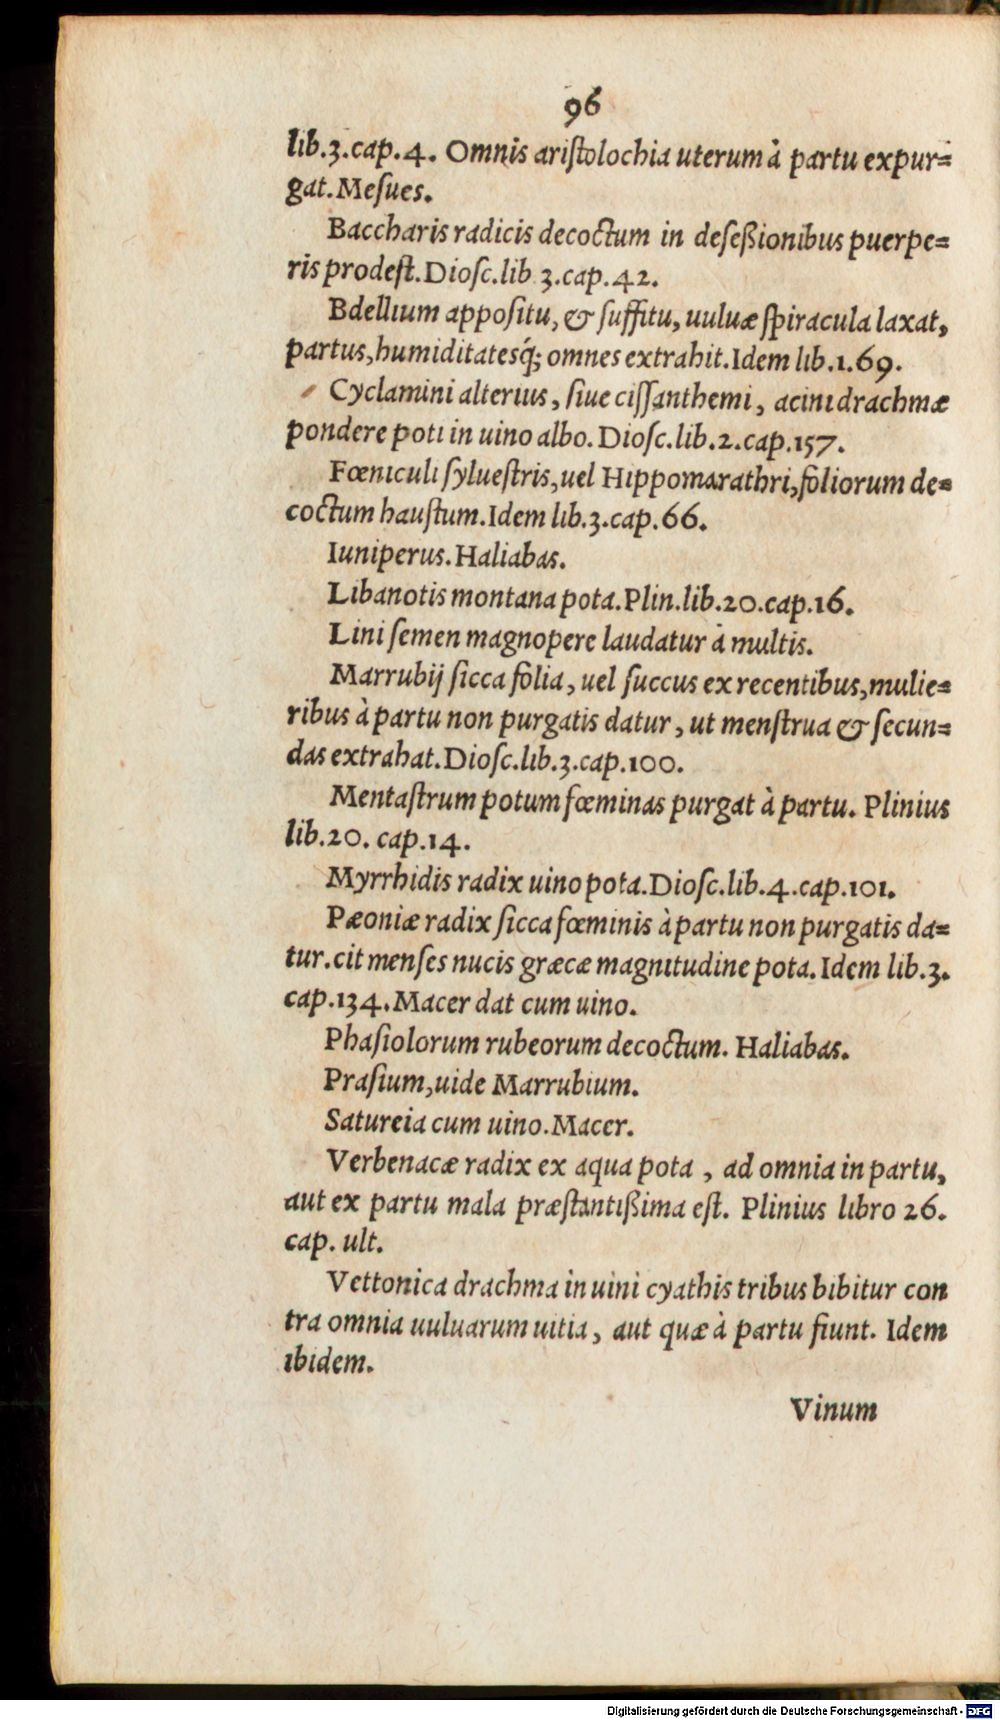 96
lib.3.cap.4. Omnis ariſtolochia uterum à partu expur=
gat. Meſues.
Baccharis radicis decoctum in deſeßionibus puerpe=
ris prodeſt. Dioſc. lib. 3. cap. 42.
Bdellium appoſitu, & ſuffitu, uuluæ ſpiracula laxat,
partus, humiditatesq́; omnes extrahit. Idem lib.1.69.
Cyclamini alterius, ſiue ciſſanthemi, acini drachmæ
pondere poti in uino albo. Dioſc. lib.2.cap.157.
Fœniculi ſylueſtris, uel Hippomarathri, foliorum de=
coctum hauſtum. Idem lib.3.cap.66.
Iuniperus. Haliabas.
Libanotis montana pota. Plin. lib.20.cap.16.
Lini ſemen magnopere laudatur à multis.
Marrubij ſicca folia, uel ſuccus ex recentibus, mulie=
ribus à partu non purgatis datur, ut menſtrua & ſecun=
das extrahat. Dioſc. lib.3.cap.100.
Mentaſtrum potum fœminas purgat à partu. Plinius
lib.20. cap.14.
Myrrhidis radix uino pota. Dioſc. lib.4.cap.101.
Pæoniæ radix ſicca fœminis à partu non purgatis da=
tur. cit menſes nucis græcæ magnitudine pota. Idem lib.3.
cap.134. Macer dat cum uino.
Phaſiolorum rubeorum decoctum. Haliabas.
Praſium, uide Marrubium.
Satureia cum uino. Macer.
Verbenacæ radix ex aqua pota, ad omnia in partu,
aut ex partu mala præſtantißima eſt. Plinius libro 26.
cap. ult.
Vettonica drachma in uini cyathis tribus bibitur con
tra omnia uuluarum uitia, aut quæ à partu fiunt. Idem
ibidem.
Vinum
Digitalisierung gefördert durch die Deutsche Forschungsgemeinschaft - DFG